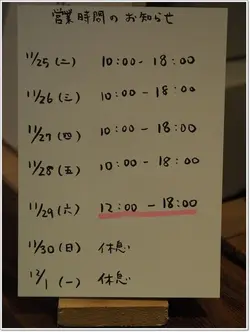 営業時間のお知らせ
11/25(二) 10:00-18:00
11/26(三) 10:00-18:00
11/27(四) 10:00-18:00
11/28(五) 10:00-18:00
11/29(六) 12:00-18:00
11/30(日) 休息
12/1(一) 休息